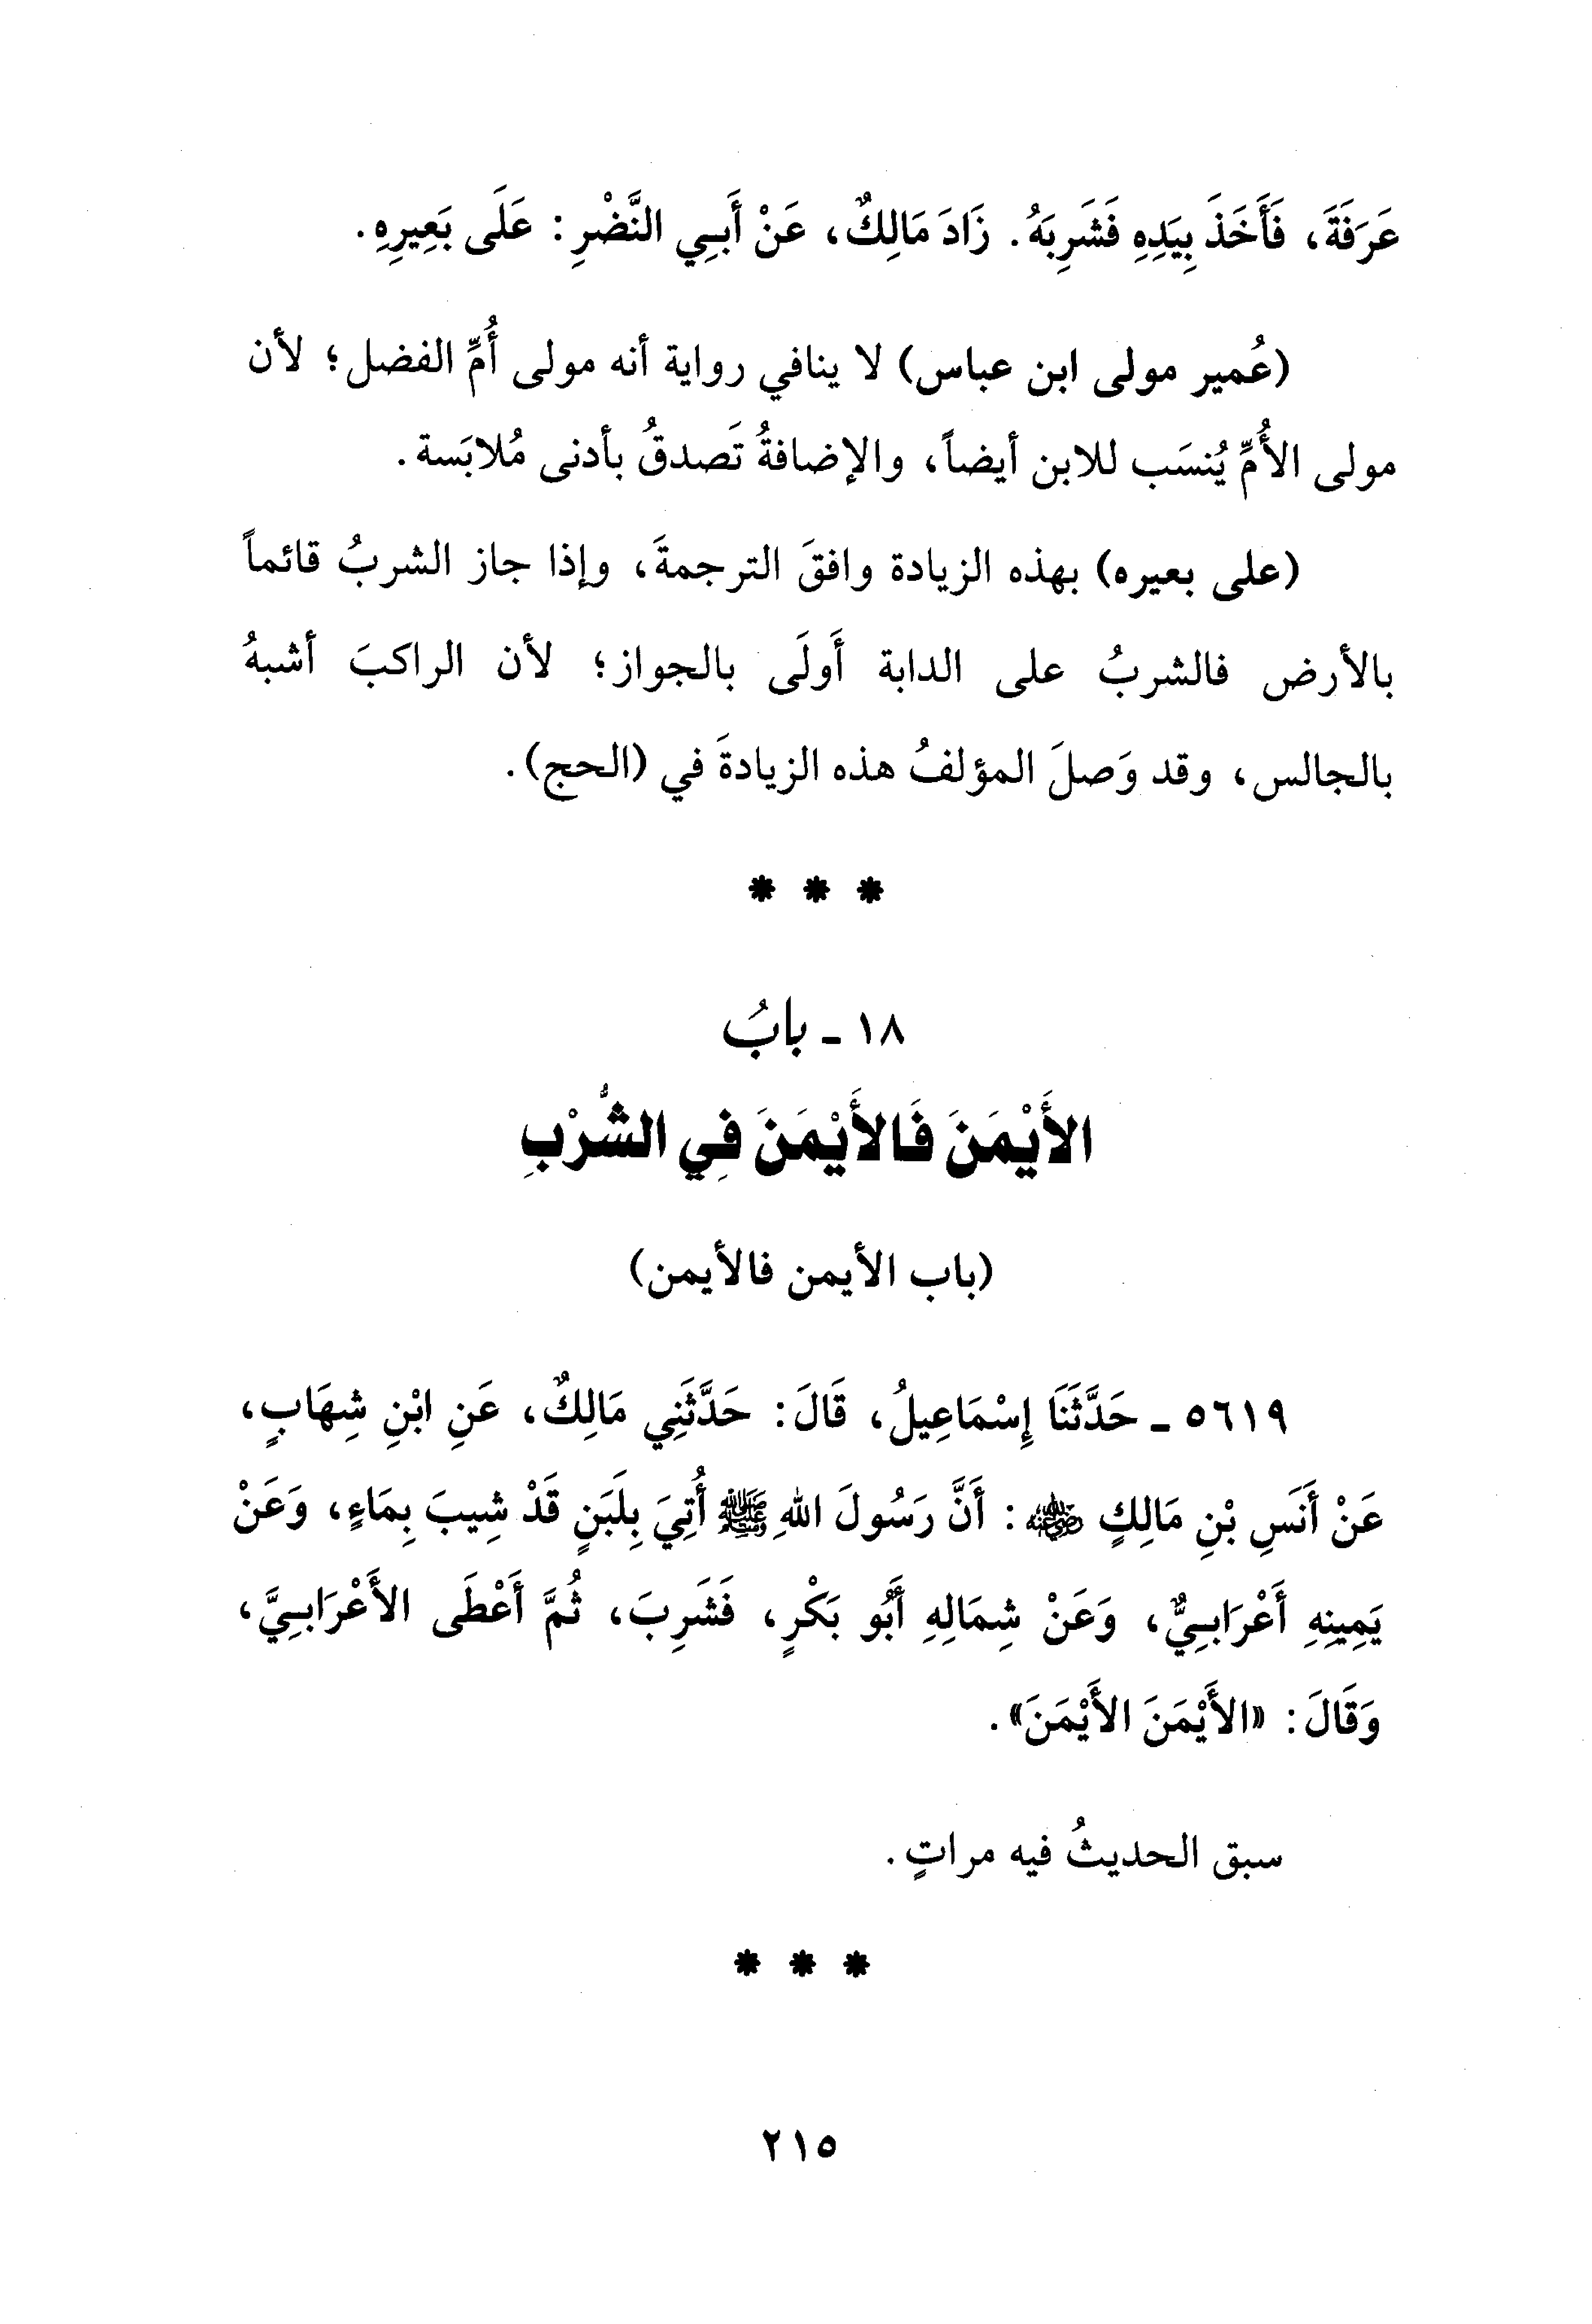 عَرَفَةَ، فَأَخَذَ بِيَدِهِ فَشَرِبَهُ. زَادَ مَالِكٌ، عَنْ أَبِي النَّضْرِ: عَلَى بَعِيرِهِ.
(عُمير مولى ابن عباس) لا ينافي رواية أنه مولى أُمِّ الفضل؛ لأن
مولى الأُمِّ يُنسَب للابن أيضاً، والإضافةُ تَصدقُ بأدنى مُلابَسة.
(على بعيره) بهذه الزيادة وافقَ الترجمةَ، وإذا جاز الشربُ قائماً
بالأرض فالشربُ على الدابة أَولَى بالجواز؛ لأن الراكبَ أشبهُ
بالجالس، وقد وَصلَ المؤلفُ هذه الزيادةَ في (الحج).
* * *
١٨ ـ بابُ
الأَيْمَنَ فَالأَيْمَنَ فِي الشُّرْبِ
(باب الأيمن فالأيمن)
٥٦١٩ ـ حَدَّثَنَا إِسْمَاعِيلُ، قَالَ: حَدَّثَنِي مَالِكٌ، عَنِ ابْنِ شِهَابٍ،
عَنْ أَنَسِ بْنِ مَالِكٍ رضي الله عنه: أَنَّ رَسُولَ اللهِ ﷺ أُتِيَ بِلَبَنٍ قَدْ شِيبَ بِمَاءٍ، وَعَنْ
يَمِينِهِ أَعْرَابِيٌّ، وَعَنْ شِمَالِهِ أَبُو بَكْرٍ، فَشَرِبَ، ثُمَّ أَعْطَى الأَعْرَابِيَّ،
وَقَالَ: «الأَيْمَنَ الأَيْمَنَ».
سبق الحديثُ فيه مراتٍ.
* * *
٢١٥